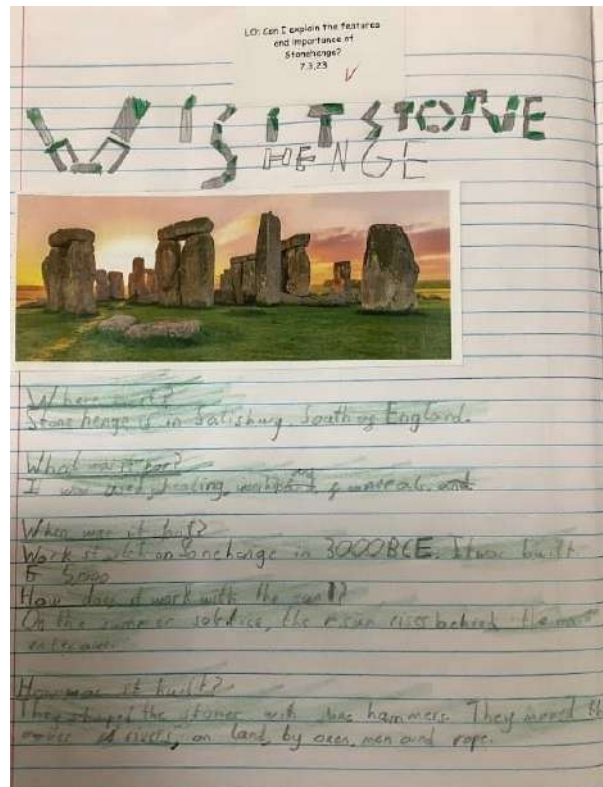 LO: Can I explain the features
and importance of
Stonehenge?
7.3.23
VISIT STONE
HENGE
Where is it?
Stone henge is in Salisbury, South of England.
What was it for?
I was used, healing, and funerals.
When was it built?
Work on in 3000BCE. It was built
How does it work with the sun?
On the summer solstice, the sun rises behind the
How was it built?
They shaped the stones with stone hammers. They moved
rivers, on land, by oxen, men and rope.